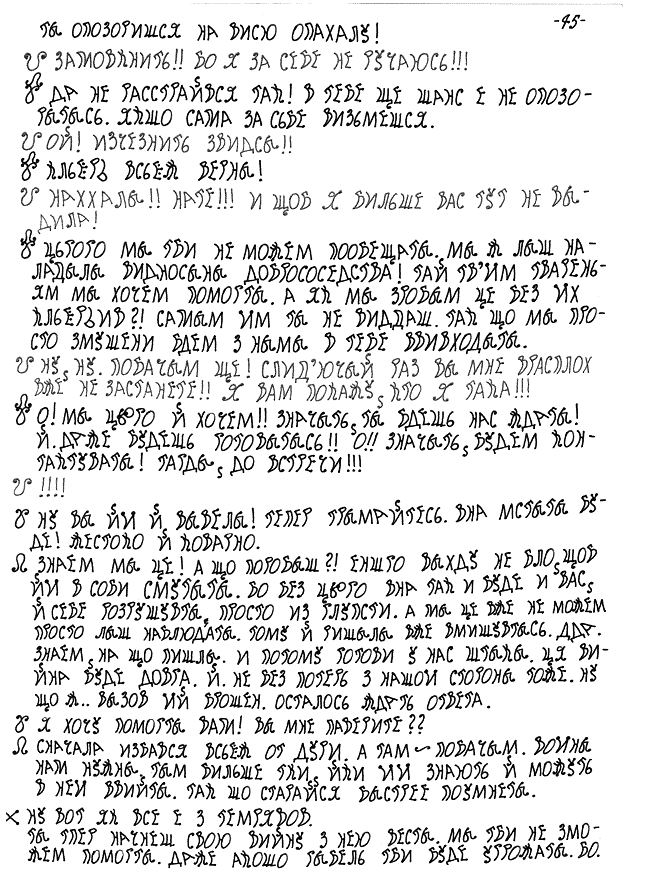 -45-
ТЫ ОПОЗОРИШСЯ НА ВИСЮ ОПАХАЛУ!
ЗАМОВКНИТЬ!! БО Я ЗА СЕБЕ НЕ РУЧАЮСЬ!!!
ДА НЕ РАССТРАЙВСЯ ТАК! В ТЕБЕ ЩЕ ШАНС Е НЕ ОПОЗО-
РЫТЫСЬ. ЯКЩО САМА ЗА СЬБЕ ВИЗЬМЕШСЯ.
ОЙ! ИЗЧЕЗНИТЬ ЗВИДСЫ!!
ВСЬЕЖ ВЕРНЫ!
НАХХАЛЫ!! НАТЕ!!! И ЩОБ Я БИЛЬШЕ ВАС ТУТ НЕ ВЫ-
ДИЛА!
ЦЬОГО МЫ ТБИ НЕ МОЖЕМ ПООБЕЩАТЫ. МЫ Ж ЛЫШ НА-
ЛАДЫЛЫ ВИДНОСЫНЫ ДОБРОСОСЕДСТВА! ТАЙ ТВ'ИМ ТВАРЕНЬ-
ЯМ МЫ ХОЧЕМ ПОМОГТЫ. А ЯК МЫ ЗРОБЫМ ЦЕ БЕЗ ИХ
САМЫМ ИМ ТЫ НЕ ВИДДАШ. ТАК ЩО МЫ ПРО-
СТО ЗМУШЕНИ БДЕМ З НЫМЫ В ТЕБЕ ВВИВХОДЫТЫ.
НУ, НУ. ПОБАЧЫМ ЩЕ! СЛИД'ЮЧЫЙ РАЗ ВЫ МНЕ ВРАСПЛОХ
ВЖЕ НЕ ЗАСТАНЕТЕ!! Я ВАМ ПОКАЖУ, КТО Я ТАКА!!!
О! МЫ ЦЬОГО Й ХОЧЕМ!! ЗНАЧЫТЬ, ТЫ БДЕШЬ НАС ЖДАТЫ!
Й. ДАЖЕ БУДЕШЬ ГОТОВЫТЫСЬ!! О!! ЗНАЧЫТЬ, БУДЕМ КОН-
ТАКТУВАТЫ! ТАГДЫ, ДО ВСТРЕЧИ!!!
!!!!
НУ ВЫ ЙИ Й ВЫВЕЛЫ! ТЕПЕР ТРЫМАЙТЕСЬ. ВНА МСТЫТЫ БУ-
ДЕ! ЖЕСТОКО Й КОВАРНО.
ЗНАЕМ МЫ ЦЕ! А ЩО ПОРОБЫШ?! ЕНШГО ВЫХДУ НЕ БЛО, ЩОБ
ЙИ В СОБИ СМУТЫТЫ. БО БЕЗ ЦЬОГО ВНА ТАК И БУДЕ И ВАС,
Й СЕБЕ РОЗРУШУВТЫ, ПРОСТО ИЗ ГЛУПСТИ. А МЫ ЦЕ ВЖЕ НЕ МОЖЕМ
ПРОСТО ЛЫШ НАБЛЮДАТЫ. ТОМУ Й РИШЫЛЫ ВЖЕ ВМИШУВТЫСЬ. ДДА.
ЗНАЕМ, НА ЩО ПИШЛЫ. И ПОТОМУ ГОТОВИ У НАС ШТЫКЫ. ЦЯ ВИ-
ЙНА БУДЕ ДОВГА. Й. НЕ БЕЗ ПОТЕРЬ З НАШОИ СТОРОНЫ ТОЖЕ. НУ
ЩО Ж.. ВЫЗОВ ИЙ БРОШЕН. ОСТАЛОСЬ ЖДАТЬ ОТВЕТА.
Я ХОЧУ ПОМОГТЫ ВАМ! ВЫ МНЕ ПАВЕРИТЕ??
СНАЧАЛА ИЗБАВСЯ ВСЬЕЖ ОТ ДУРИ. А ТАМ ~ ПОБАЧЫМ. ВОИНЫ
НАМ НУЖНЫ, ТЫМ БИЛЬШЕ ТКИ, ЙКИ ИИ ЗНАЮТЬ Й МОЖУТЬ
В НЕИ ВВИЙТЫ. ТАК ШО СТАРАЙСЯ БЫСТРЕЕ ПОУМНЕТЫ.
НУ ВОТ ЯК ВСЕ Е З ТЕМРЯВОВ.
ТЫ ТПЕР НАЧНЕШ СВОЮ ВИЙНУ З НЕЮ ВЕСТЫ. МЫ ТБИ НЕ ЗМО-
ЖЕМ ПОМОГТЫ. ДАЖЕ АКОШО ГЫБЕЛЬ ТБИ БУДЕ УГРОЖАТЫ. БО.